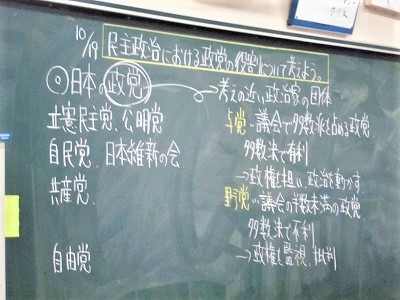 10/19 民主政治における政党の役割について考えよう。
◎日本の政党
考えの近い政治家の団体
立憲民主党、公明党
自民党、日本維新の会
共産党、
自由党
与党…議会で多数派を占める政党
多数決で有利
→政権を担い、政治を動かす
野党…議会の半数未満の政党
多数決で不利
→政権を監視、批判